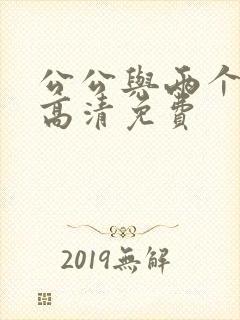 公公與兩个
高清免費
2019無解